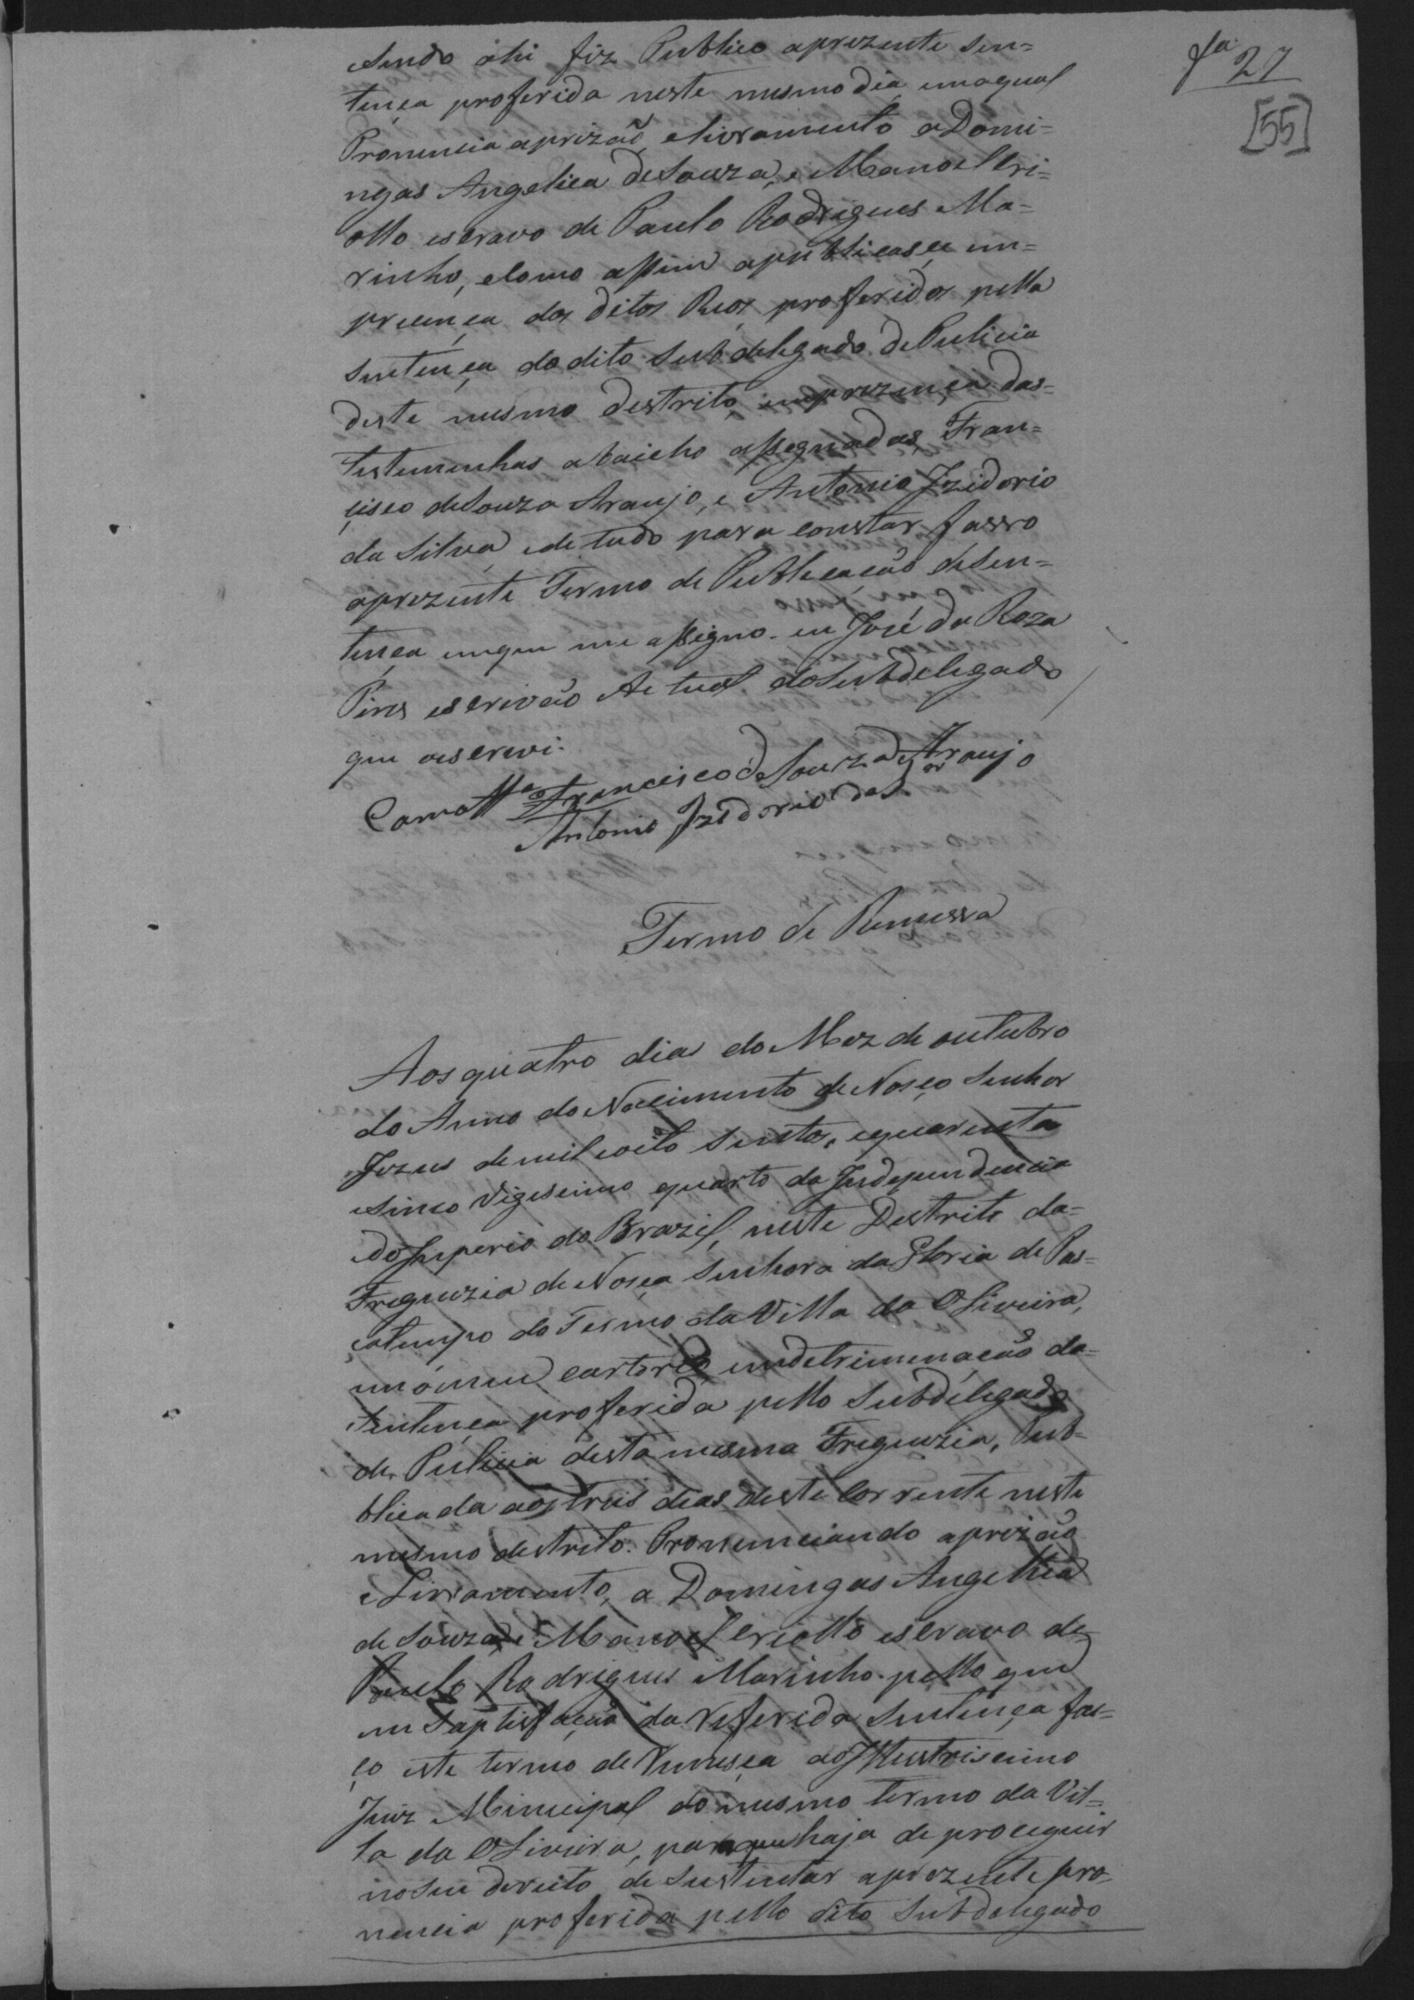 fa 27
[55]
sendo ahi fiz Publico aprezente Sen=
tença proferida neste mesmo dia emaqual
Pronuncia aprizaõ, elivramento a Domi=
ngas Angelica de Souza, e Manoel Cri=
ollo escravo de Paulo Rodrigues Ma=
rinho, ecomo assim apublicasce em=
precença dos ditos Reos proferidos pella
Sentença do dito Subdelegado de Pulicia
deste mesmo destrito emprezença das=
testemunhas abaicho assegnadas Fran=
çisco de Souza Araujo, e Antonio Izidorio
da Silva, edetudo para constar fasso
aprezente Termo de Publicação deSen=
tença emque me assigno. eu José da Roza
Pires escrivão Actual doSubdelegado
que oescrevi.
Como tta Francisco de Souza de Araujo
Antonio Izidorio da S.ª
Termo de Remessa
Aos quatro dias do Mez de outubro
do Anno do Nacimento de Nosço Senhor
Jezus demil eoito Sentos, equarenta
esinco Vigescimo quarto da Independencia
do Imperio do Brazil, neste Destrito da=
Freguezia de Nosça Senhora da Gloria de Pas=
çatempo do Termo da Villa da Oliveira,
em ómeu cartorio, emdetrimenação da=
Sentença proferida pello Subdelegado
de Pulicia desta mesma Freguezia, Pub=
blicada aos treis dias deste Corrente neste
mesmo destrito. Pronunciando aprizão
eLivramento, a Domingas Angellica
de Souza, e Manoel criollo escravo de
Paulo Rodrigues Marinho. pello que
em Saptisfação da referida Sentença fas=
ço este termo de Remesça ao Illustriscimo
Juiz Municipal do mesmo termo da Vil=
la da Oliveira, para que haja de proceguir
noseu dereito de Sustentar aprezente pro=
nuncia proferida pello dito Subdelegado